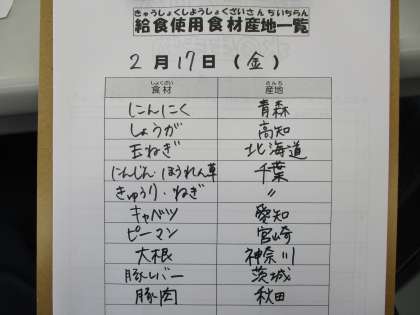 きゅうしょくしようしょくざいさんちいちらん
給食使用食材産地一覧
2月17日(金)
しょくざい さんち
食材 産地
にんにく 青森
しょうが 高知
玉ねぎ 北海道
にんじん・ほうれん草 千葉
きゅうり・ねぎ 〃
キャベツ 愛知
ピーマン 宮崎
大根 神奈川
豚レバー 茨城
豚肉 秋田